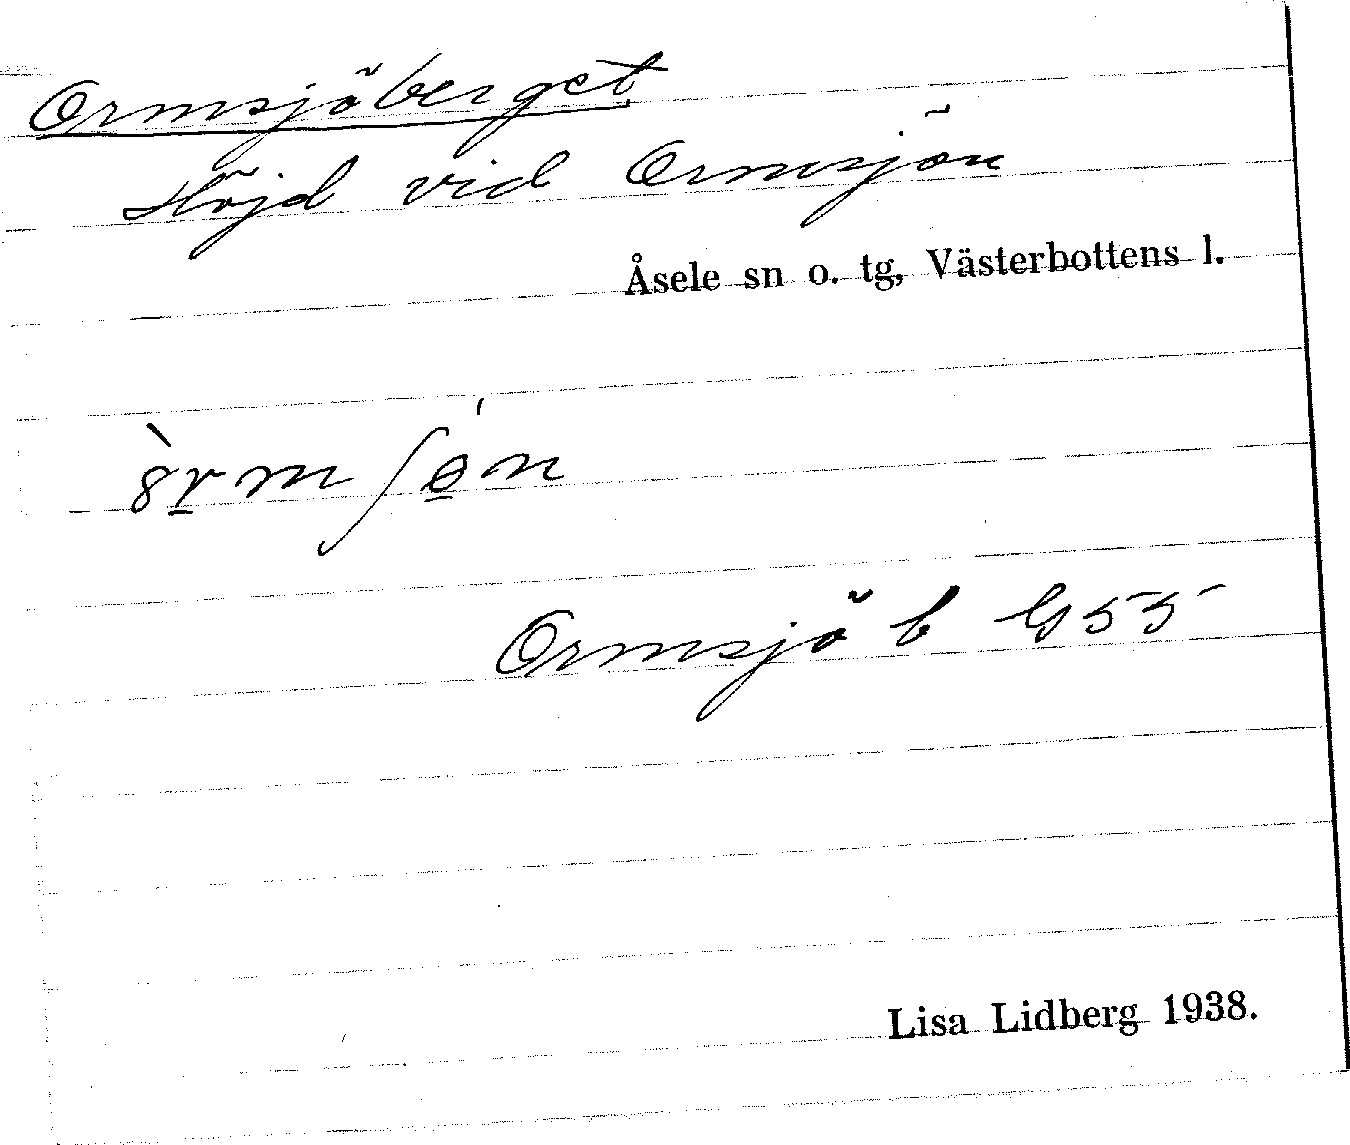 Ormsjöberget
Höjd vid Ormsjön
Åsele sn o. tg, Västerbottens l.
Ormsjö b G55
Lisa Lidberg 1938.